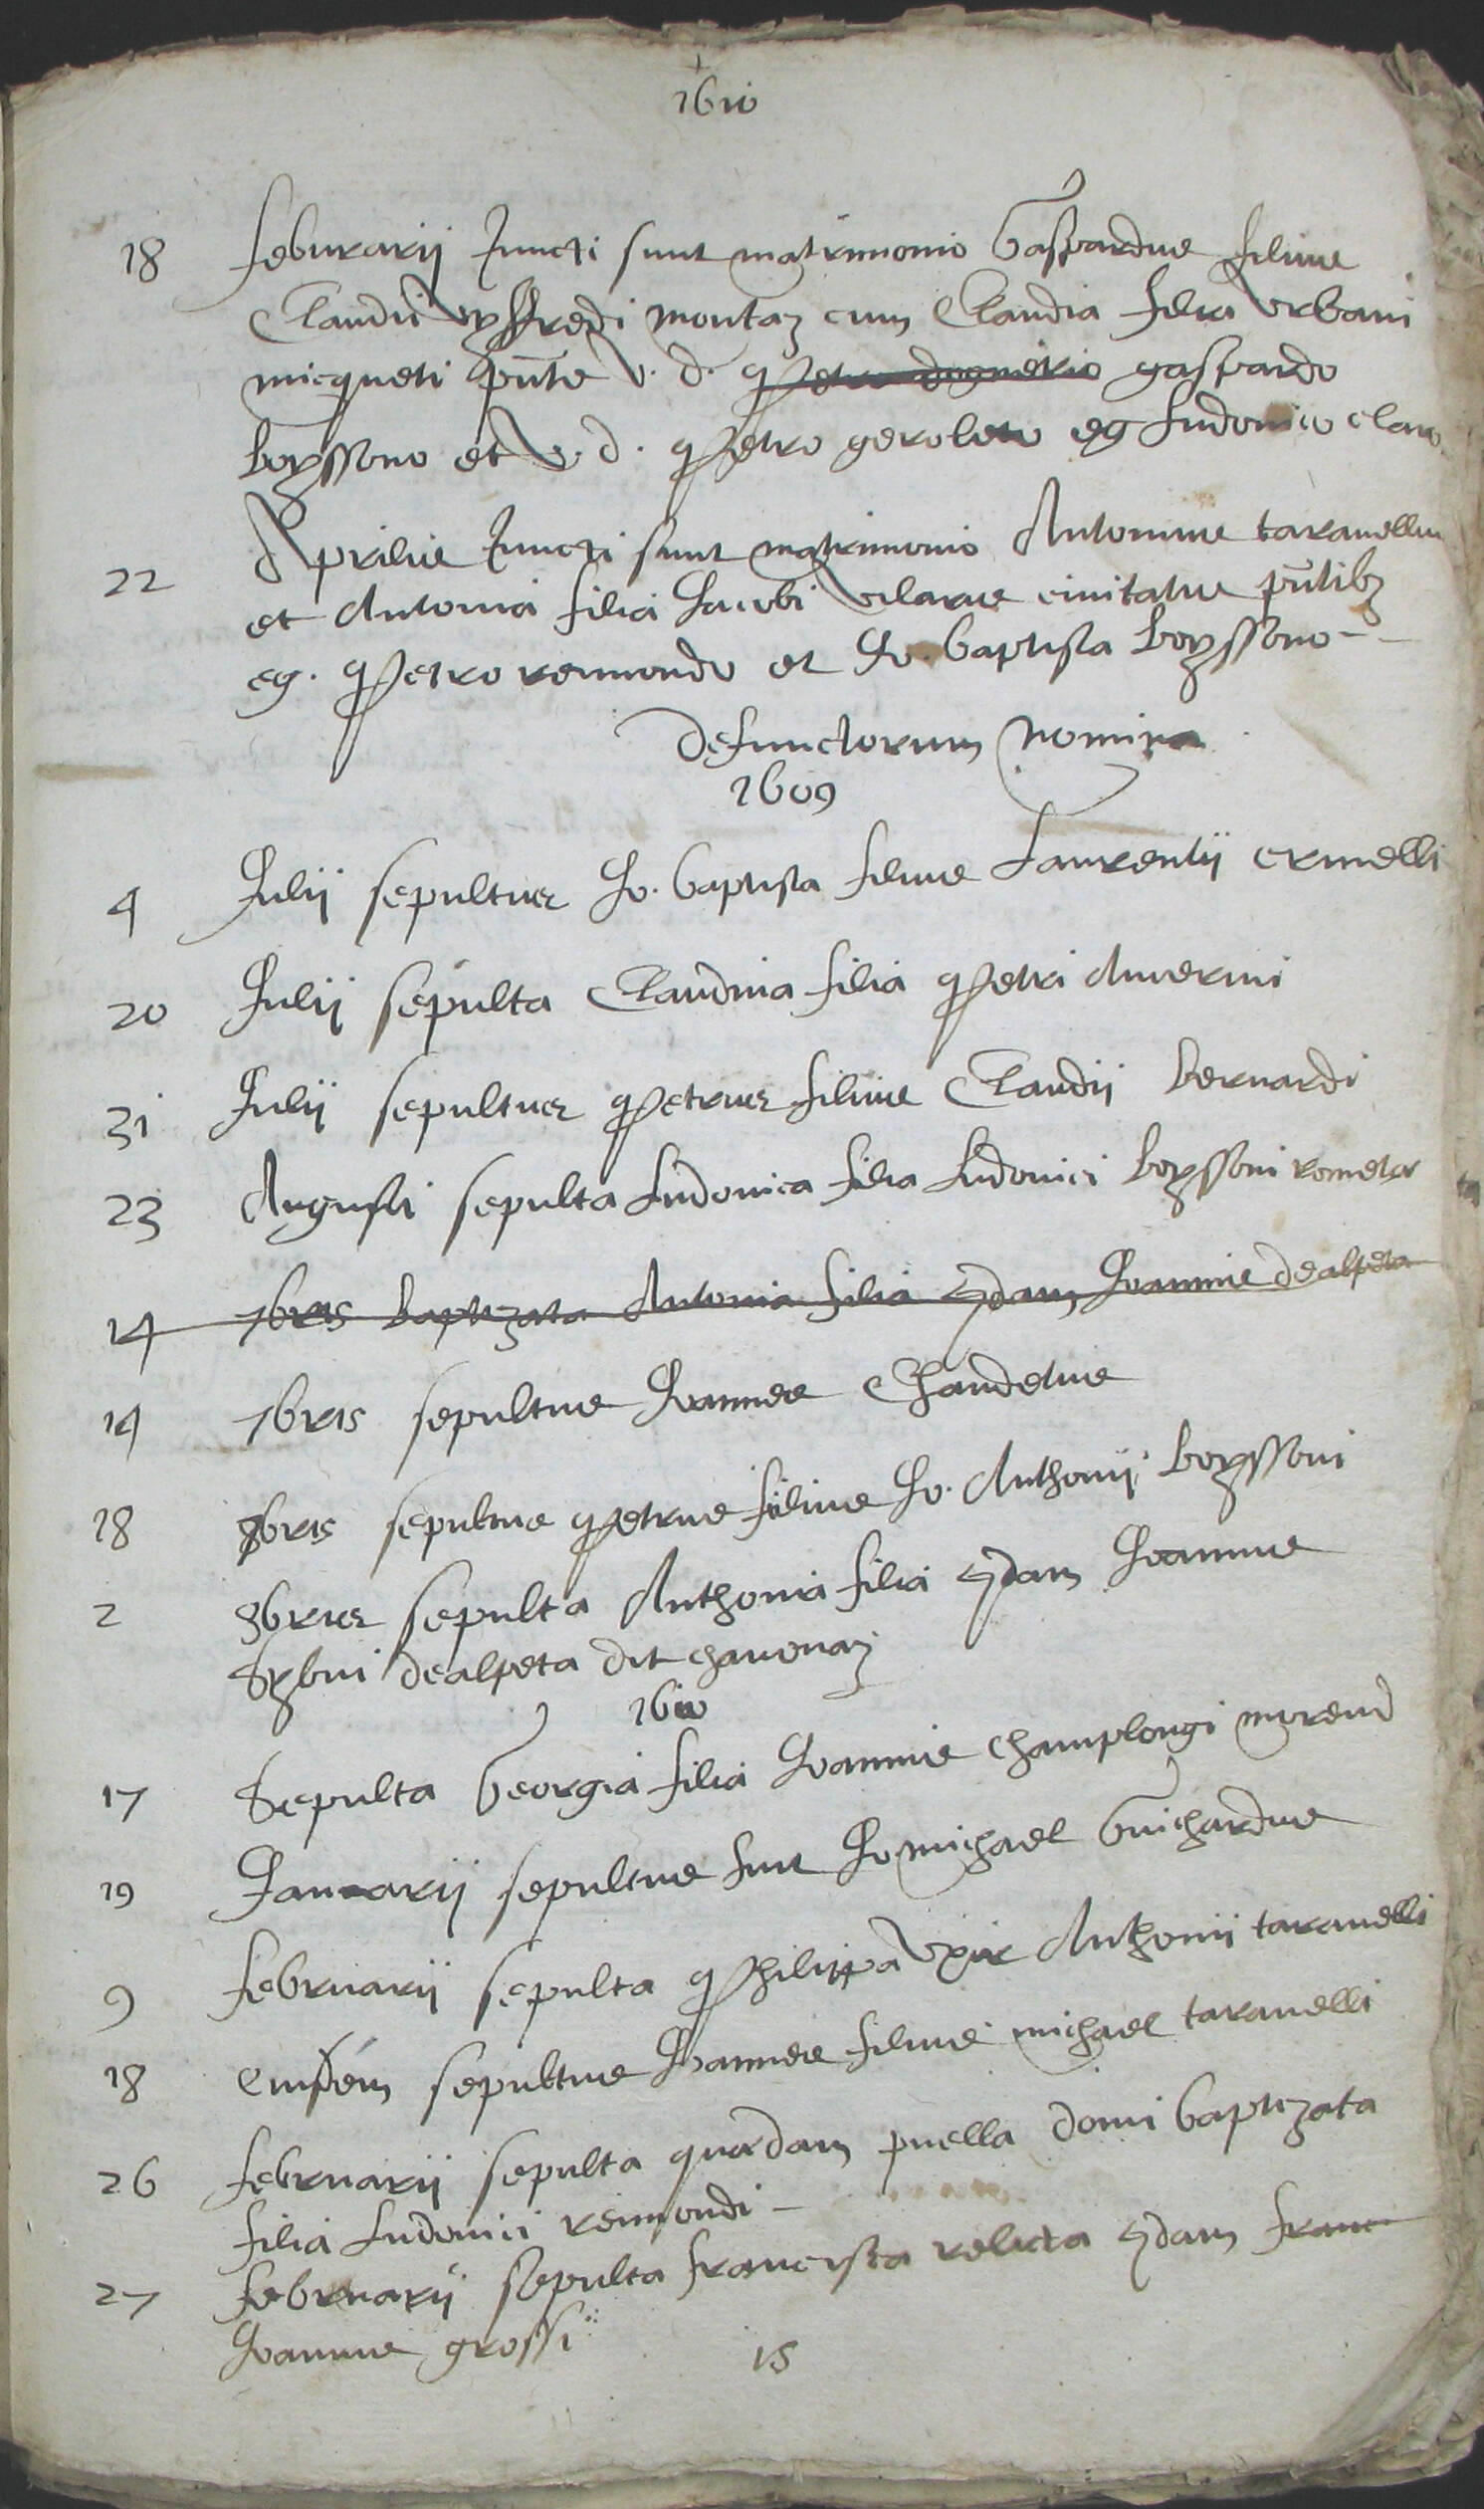 1610
18 feburarii Juncti sunt matrimonio Gaspardus filius
Claudii montaz cum Claudia filia Urbani
micqueti pnte v. d. petro gaspardo
boyssono et v. d. petro geroleto eg ludovico claro
22 Aprilis Juncti sunt matrimonio Antonius taravellus
et Antonia filia Jacobi vilaris civitatis pntibz
eg. petro reimondo et Jo. baptista boyssono
Defunctorum nomina
1609
4 Julii sepultus Jo. baptista filius Laurentii ermelli
20 Julii sepulta Claudina filia petri Auvernii
31 Julii sepultus petrus filius Claudii bernardi
23 Augusti sepulta Ludovica filia Ludovici boyssoni
14 7bris baptizata Antonia filia qdam Joannis dealpeta
14 7bris sepultus Joannes Chaudetus
18 8bris sepultus petrus filius Jo. Anthonii boyssoni
2 9bris sepulta Anthonia filia qdam Joannis
dealpeta dit chavonaz
1610
17 Sepulta Georgia filia Joannis Champlongi
19 Januarii sepultus fuit Jo michael Guichardus
9 februarii sepulta philippa uxor Anthonii taravelli
18 eiusdem sepultus Joannes filius michael taravelli
26 februarii sepulta quædam puella domi baptizata
filia Ludovici reimondi
27 februarii sepulta francisca relicta qdam franc
Joannis grossi
15